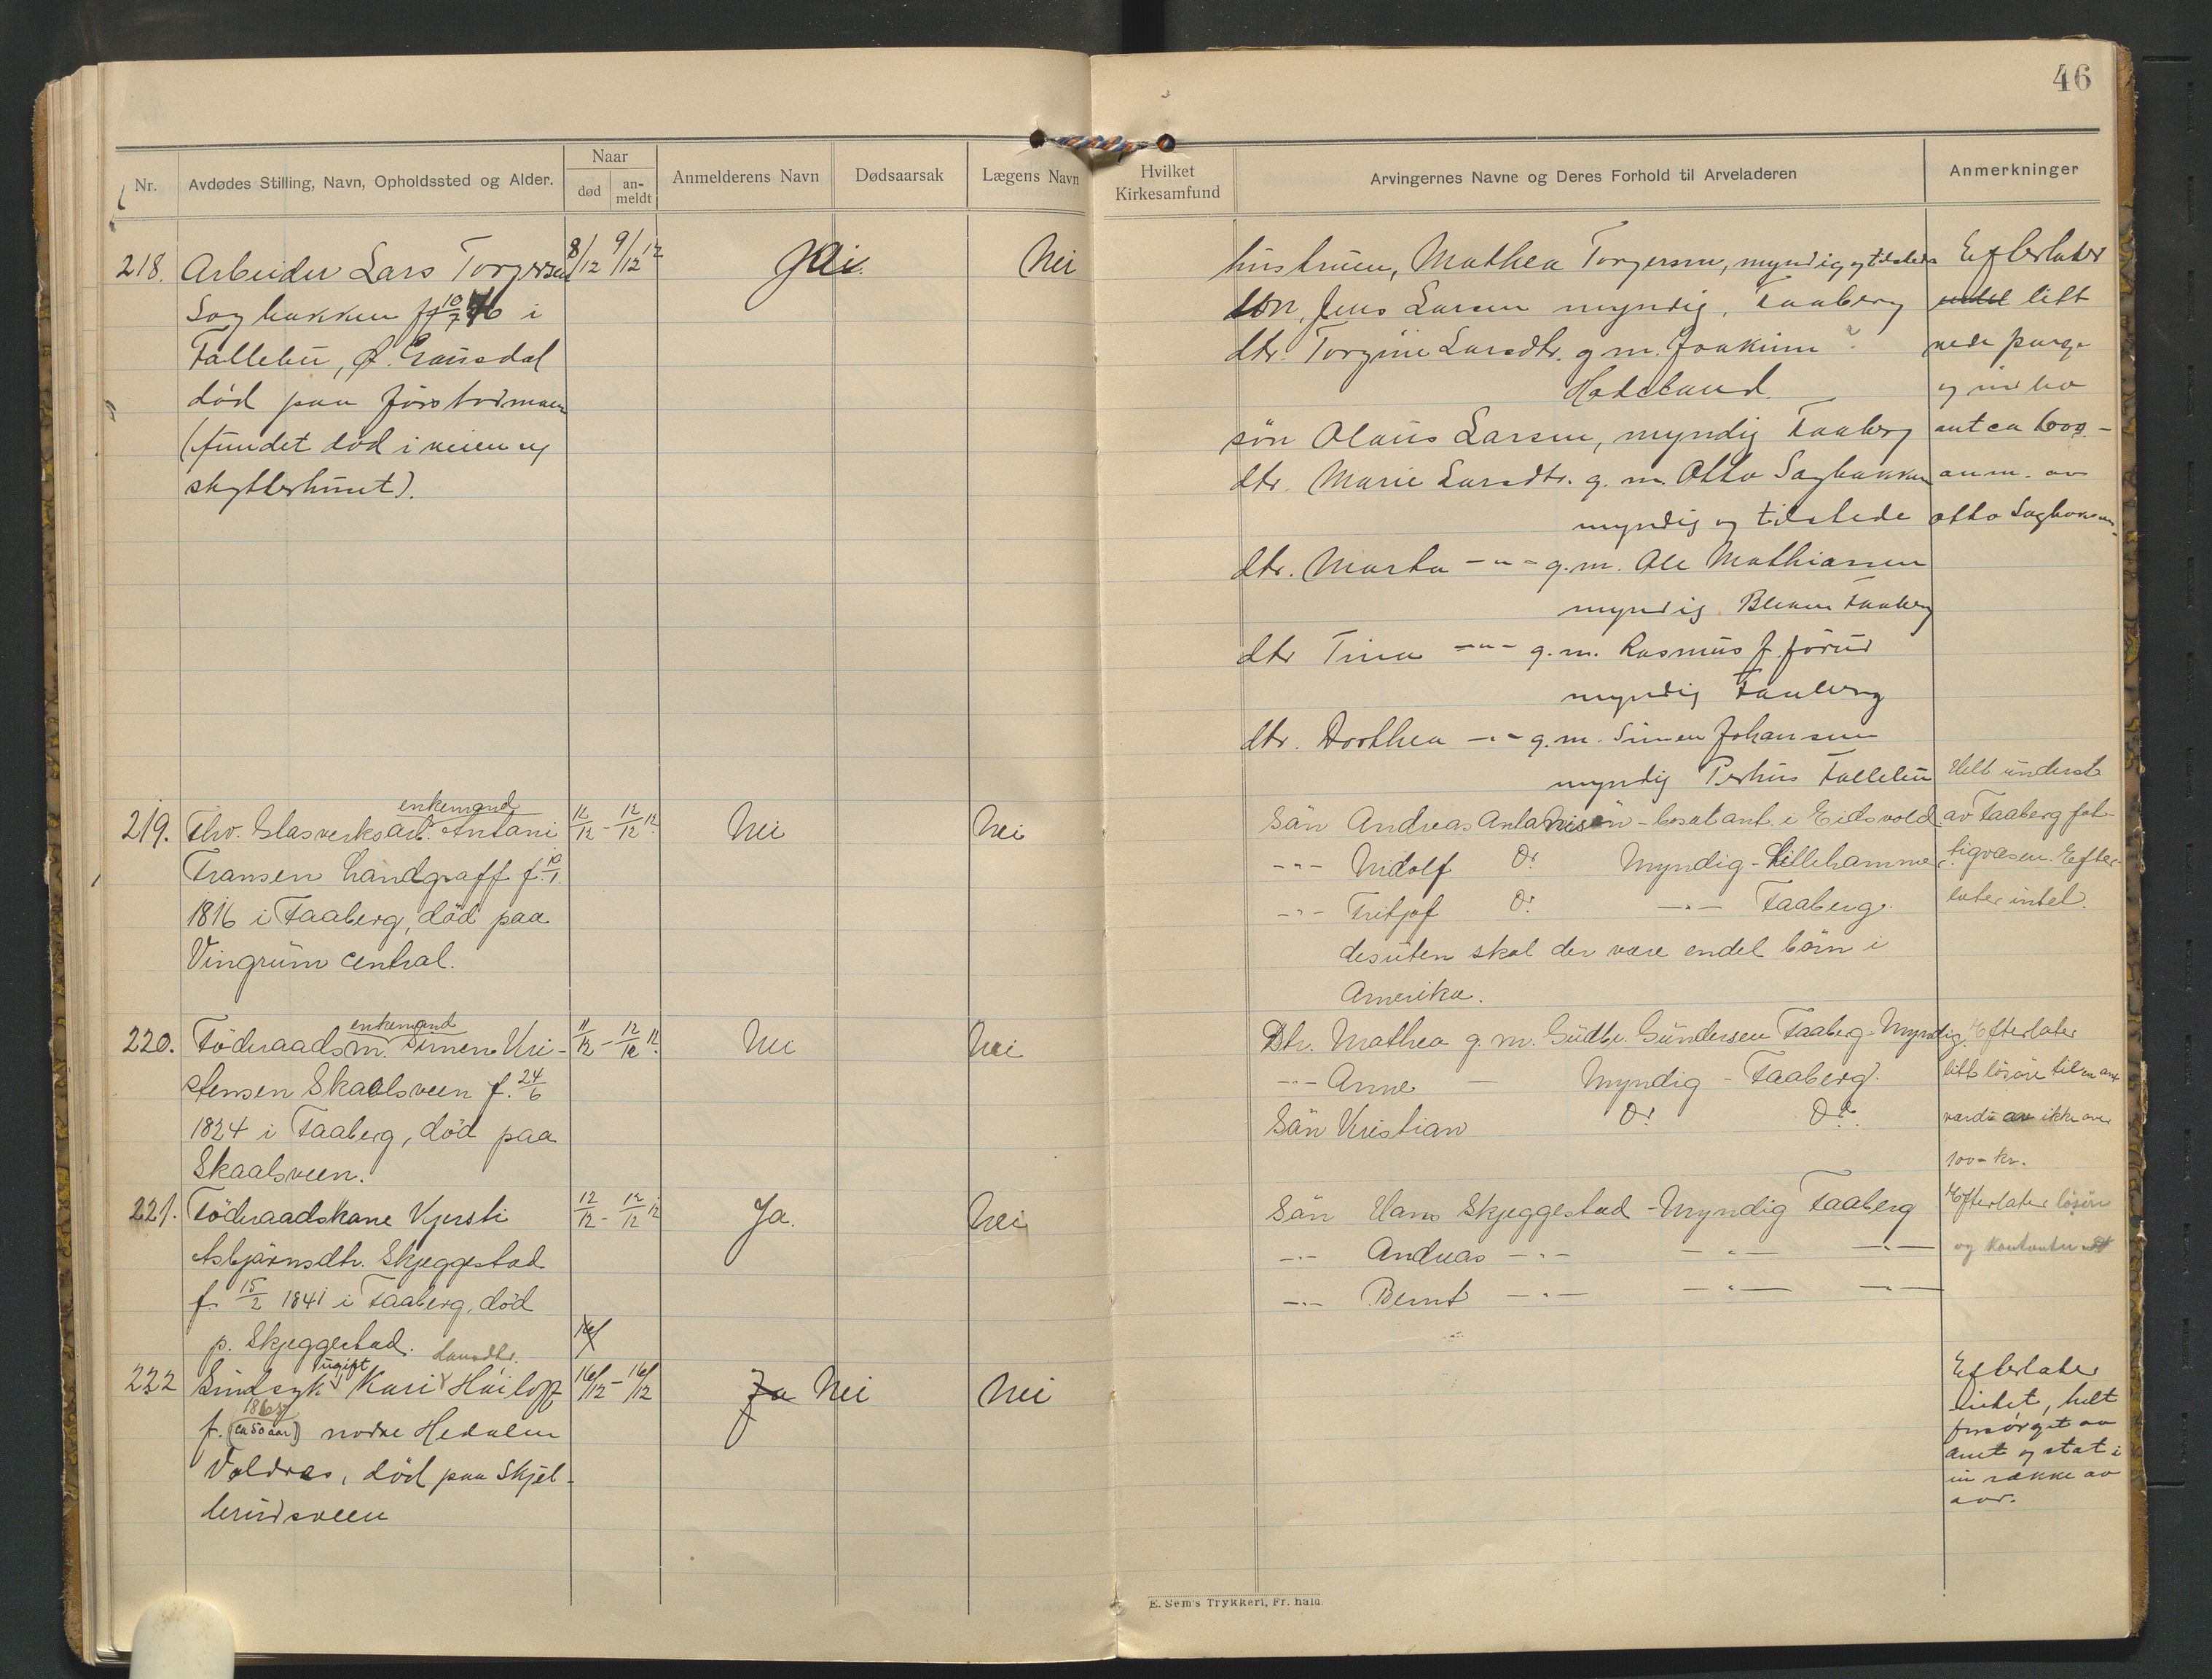 46
Nr.
Avdødes Stilling, Navn, Opholdssted og Alder.
Naar
død
an-
meldt
Anmelderens Navn
Dødsaarsak
Lægens Navn
Hvilket
Kirkesamfund
Arvingernes Navne og Deres Forhold til Arveladeren
Anmerkninger
218. Arbeider Lars Torgersen 8/12 9/12 12 Nei
Sagbakken f 10/7 46 i
Follebu, Ø. Gausdal
død paa
(fundet død i veien ug
skytterhuset).
hustruen, Mathea Torgersen, myndig og tilstede
søn, Jens Larsen myndig, Faaberg
dtr. Torgine Larsdtr. g. m. Joakim ?
Hadeland.
søn Olaus Larsen, myndig Faaberg
dtr. Marie Larsdtr. g. m. Otto Sagbakken
myndig og tilstede
dtr. Marta -"- g. m. Ole Mathiassen
myndig Faaberg
dtr Tina -"- g. m. Rasmus
myndig Faaberg
dtr. Dorthea -"- g. m. Simen Johansen
myndig Perhus Follebu
Efterlater
litt
penge
og
ant ca 600.-
anm. av
Otto Sagbakken
219. Fhv. Glasverksarb. enkemand Antoni 12/12 - 12/12 12. Nei Nei
Fransen Landgraff f. 10/1.
1816 i Faaberg, død paa
Vingrum central.
Sön Andreas Antonisön - bosat ant. i Eidsvold
-"- Nidolf Do. Myndig - Lillehammer.
-"- Fritjof Do. -"- Faaberg.
desuten skal der være endel börn i
Amerika.
Helt underst.
av Faaberg fat-
tigvæsen. Efter-
later intet.
220. Föderaadsm. enkemand Simen Kri- 11/12 - 12/12 12. Nei Nei
stensen Skaalsveen f. 24/6
1824 i Faaberg, död paa
Skaalsveen.
Dtr. Mathea g. m. Gudbr. Gundersen Faaberg - Myndig.
-"- Anne - Myndig - Faaberg.
Sön Kristian Do. Do.
Efterlater
litt lösöre til en ant
værdi av ikke over
100 - kr.
221. Föderaadskone Kjersti 12/12 - 12/12 12 Ja. Nei
Asbjörnsdtr. Skjeggestad
f. 15/2 1841 i Faaberg, död
p. Skjeggestad.
Sön Hans Skjeggestad - Myndig Faaberg
-"- Andreas -"- -"- -"-
-"- Bernt -"- -"- -"-
Efterlater lösöre
og kontanter
222 Sindsyk ugift Kari 16/12 - 16/12 Ja Nei Nei
f. (ca 50 aar) nordre Hedalen
Valdres, död paa Skjel-
lerudsveen
Efterlater
intet, helt
forsørget av
amt og stat i
en række av
aar.
E. Sem's Trykkeri, Fr. hald.